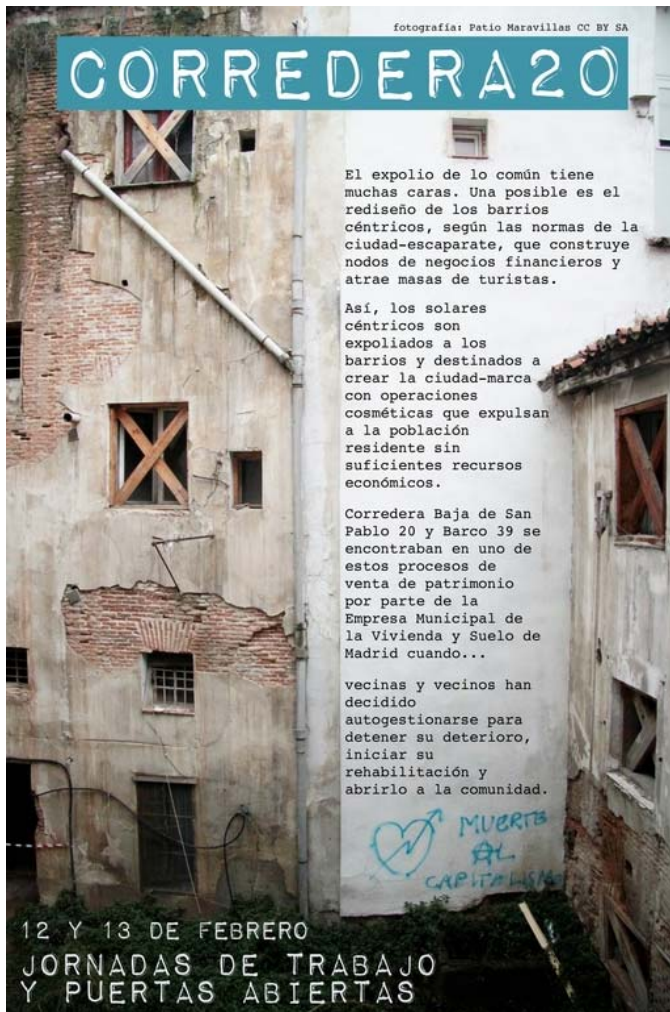 fotografía: Patio Maravillas CC BY SA
CORREDERA20
El expolio de lo común tiene
muchas caras. Una posible es el
rediseño de los barrios
céntricos, según las normas de la
ciudad-escaparate, que construye
nodos de negocios financieros y
atrae masas de turistas.
Así, los solares
céntricos son
expoliados a los
barrios y destinados a
crear la ciudad-marca
con operaciones
cosméticas que expulsan
a la población
residente sin
suficientes recursos
económicos.
Corredera Baja de San
Pablo 20 y Barco 39 se
encontraban en uno de
estos procesos de
venta de patrimonio
por parte de la
Empresa Municipal de
la Vivienda y Suelo de
Madrid cuando...
vecinas y vecinos han
decidido
autogestionarse para
detener su deterioro,
iniciar su
rehabilitación y
abrirlo a la comunidad.
MUERTE
AL
CAPITALISMO
12 Y 13 DE FEBRERO
JORNADAS DE TRABAJO
Y PUERTAS ABIERTAS